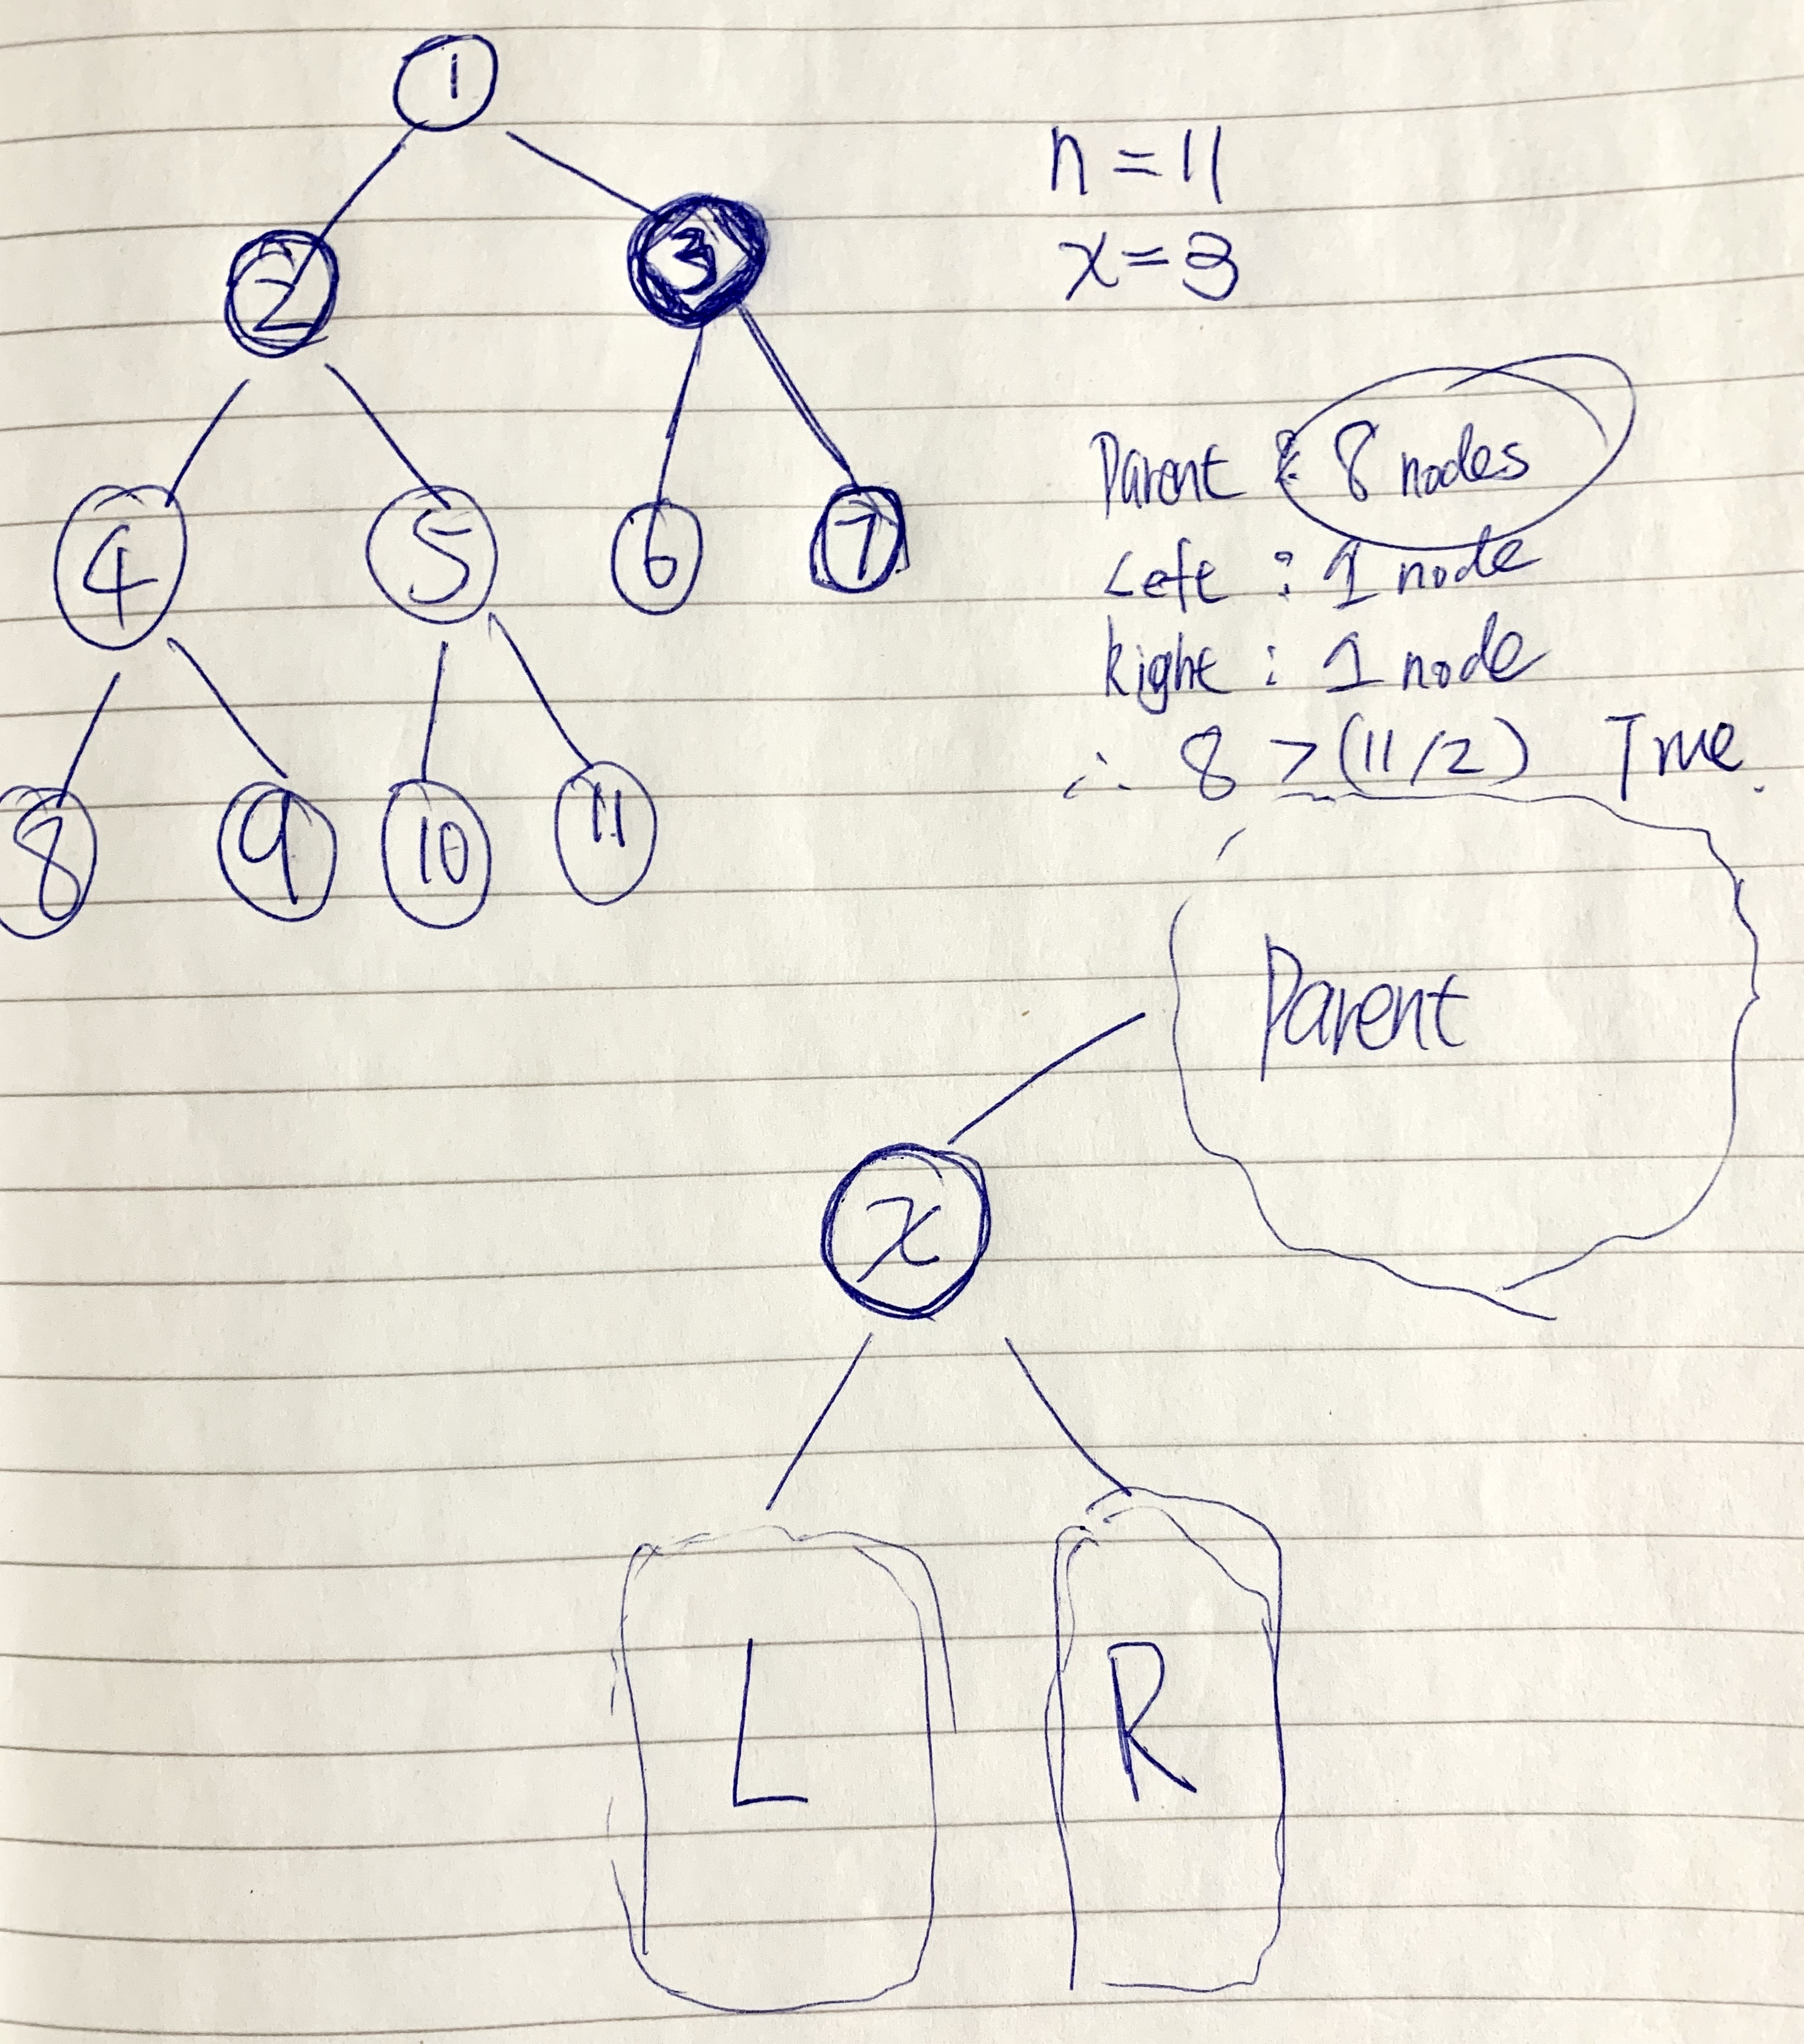 1
2 3
4 5 6 7
8 9 10 11
n = 11
x = 3
Parent : 8 nodes
Left : 1 node
Right : 1 node
∴ 8 > (11/2) True.
Parent
x
L R